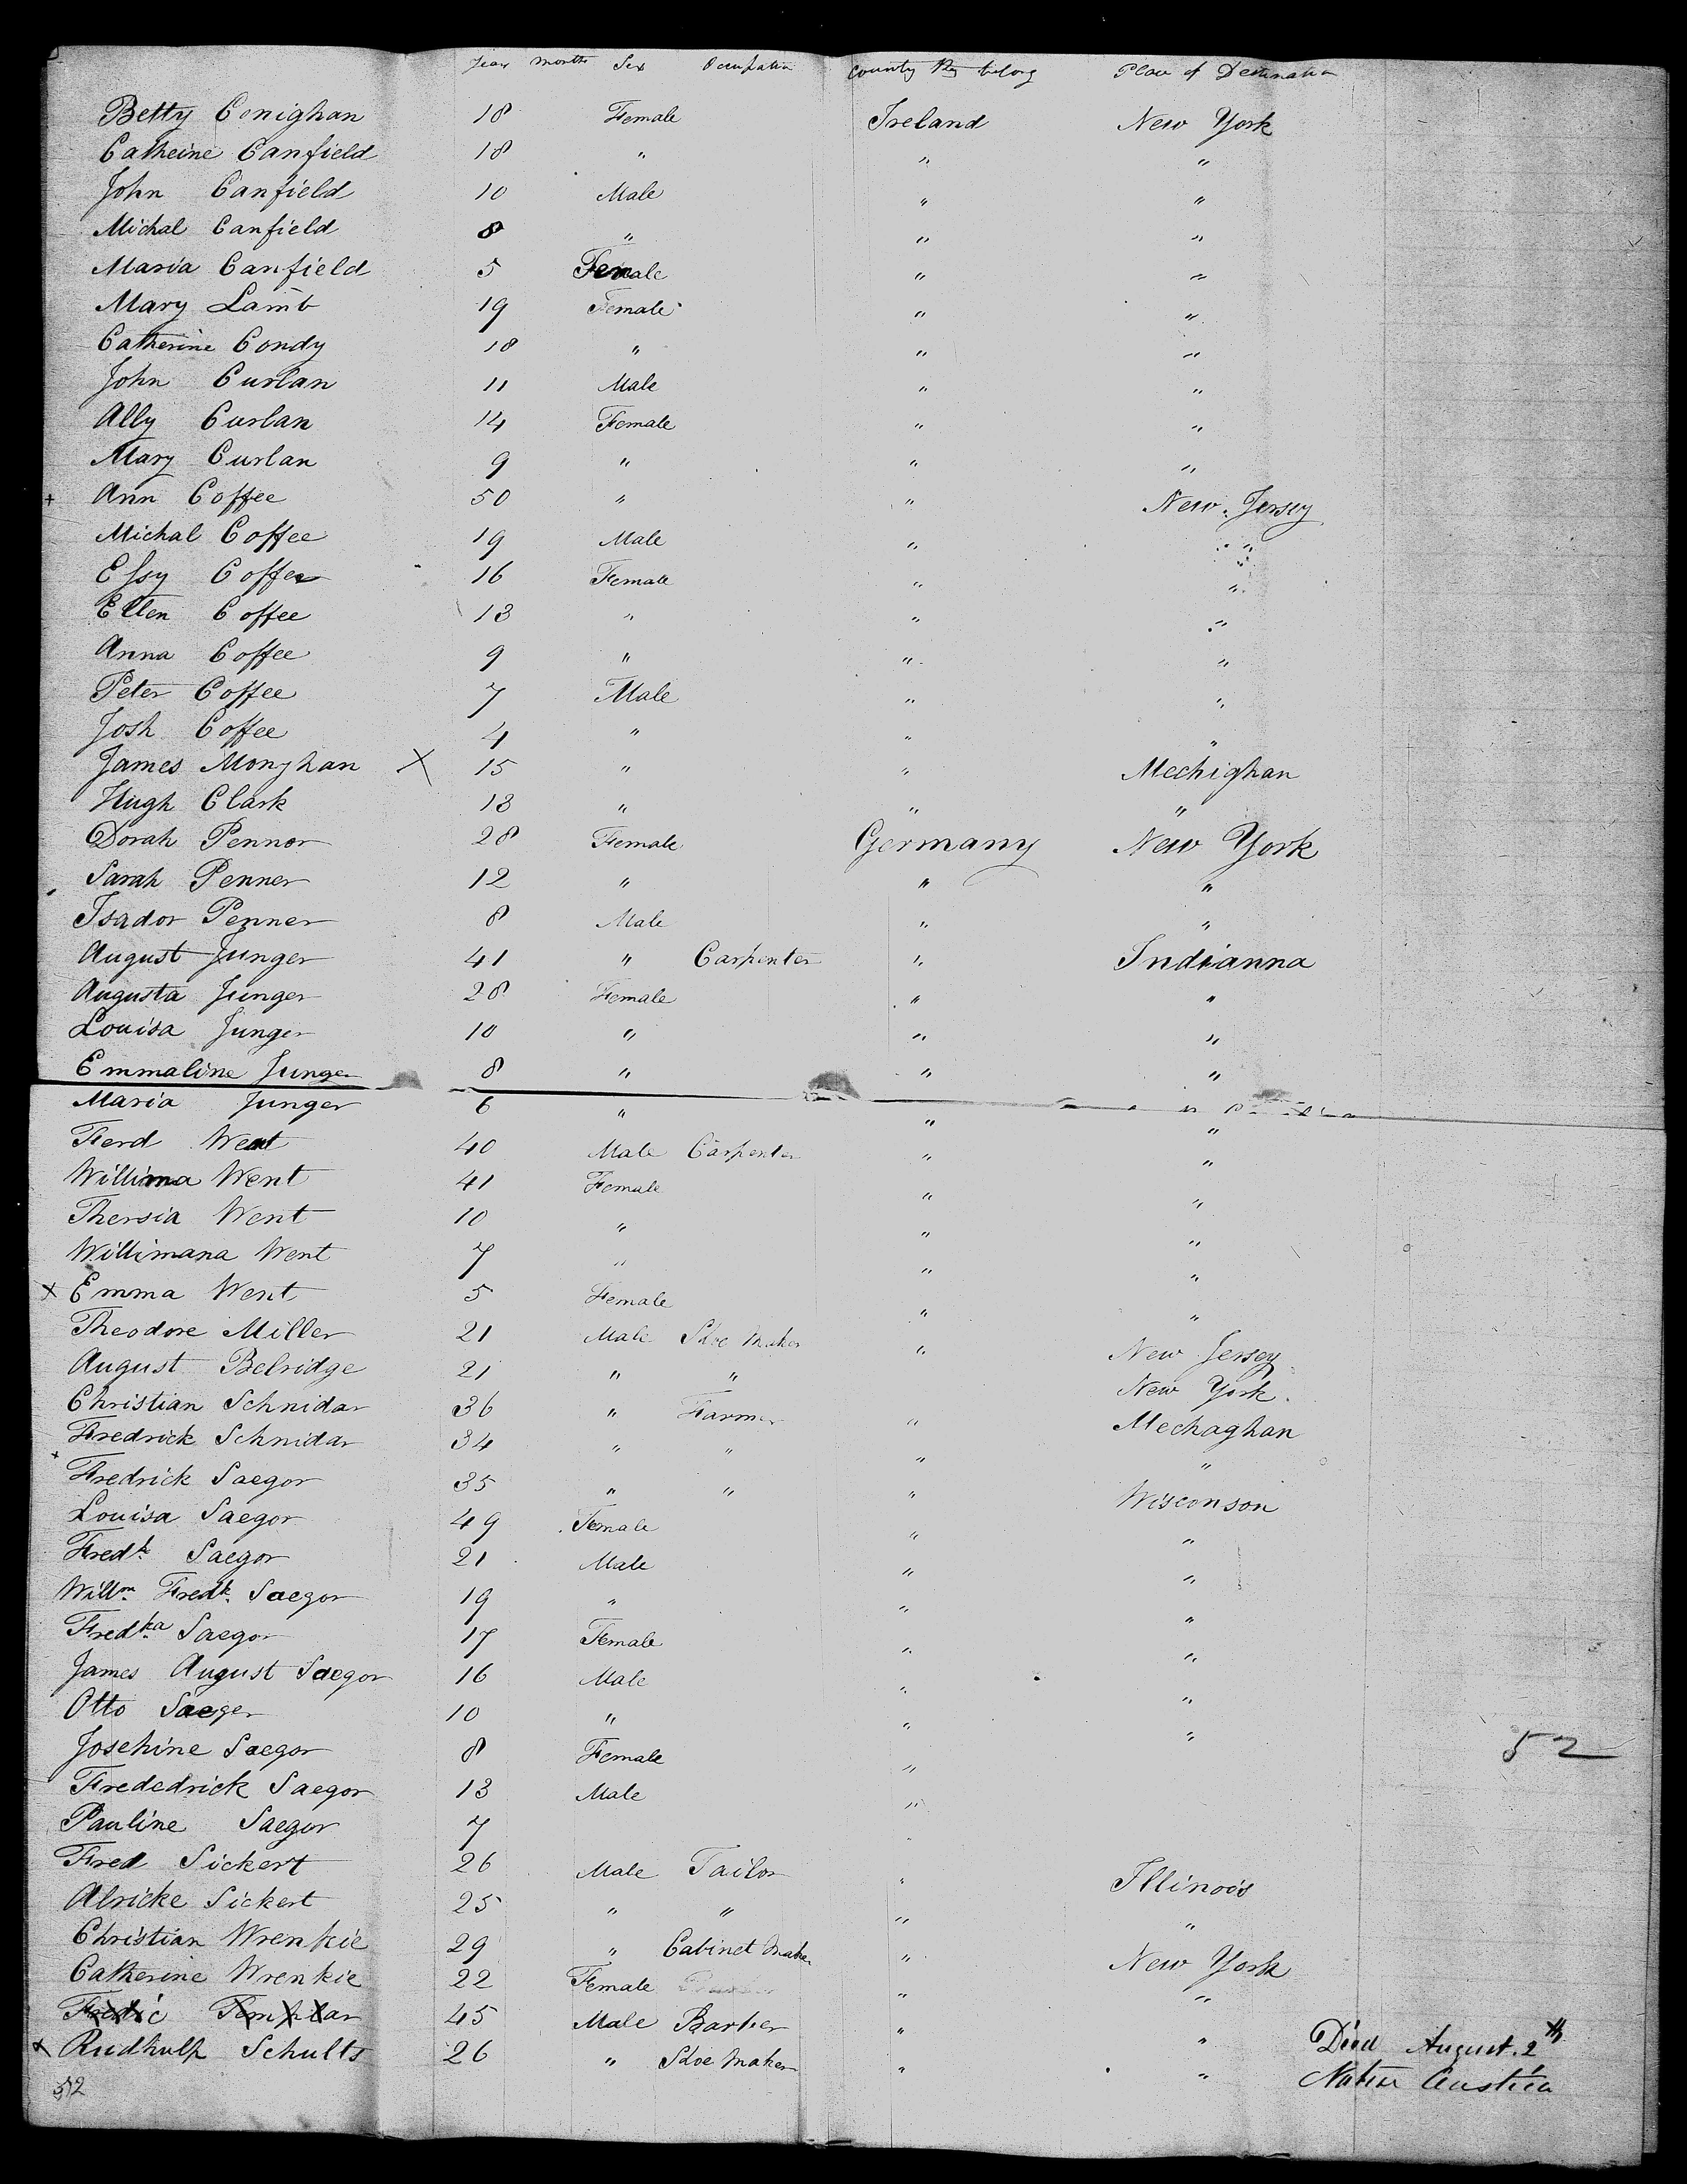 Years Months Sex Occupation County they belong Place of Destination
Betty Conighan 18 Female Ireland New York
Catheine Canfield 18 " " "
John Canfield 10 Male " "
Michal Canfield 8 " " "
Maria Canfield 5 Female " "
Mary Lamb 19 Female " "
Catherine Condy 18 " " "
John Curlan 11 Male " "
Ally Curlan 14 Female " "
Mary Curlan 9 " " "
+ Ann Coffee 50 " " New Jersey
Michal Coffee 19 Male " "
Essy Coffee 16 Female " "
Ellen Coffee 13 " " "
Anna Coffee 9 " " "
Peter Coffee 7 Male " "
Josh Coffee 4 " " "
James Monghan X 15 " " Mechighan
Hugh Clark 13 " " "
Dorah Pennor 28 Female Germany New York
Sarah Penner 12 " " "
Isador Penner 8 Male " "
August Junger 41 " Carpenter " Indianna
Augusta Junger 28 Female " "
Louisa Junger 10 " " "
Emmaline Junger 8 " " "
Maria Junger 6 " " "
Ferd Went 40 Male Carpenter " "
Willimna Went 41 Female " "
Thersia Went 10 " " "
Willimana Went 7 " " "
x Emma Went 5 Female " "
Theodore Miller 21 Male Shoe Maker " New Jersey
August Belridge 21 " " New York
Christian Schnidar 36 " Farmer " Mechaghan
Fredrick Schnidar 34 " " " "
+ Fredrick Saegor 35 " " " Wisconson
Louisa Saegor 49 Female " "
Fredk Saegor 21 Male " "
Willm Fredk Saegor 19 " " "
Fredka Saegor 17 Female " "
James August Saegor 16 Male " "
Otto Saeger 10 " " "
Josehine Saegor 8 Female " 52
Frededrick Saegor 13 Male "
Pauline Saegor 7
Fred Sickert 26 Male Tailor " Illinois
Alricke Sickert 25 " " " "
Christian Wrenkie 29 " Cabinet Maker " New York
Catherine Wrenkie 22 Female " "
Fredic Templar 45 Male Barber " " Died August 2th
x Rudhulph Schults 26 " Shoe Maker " " Native Austria
52